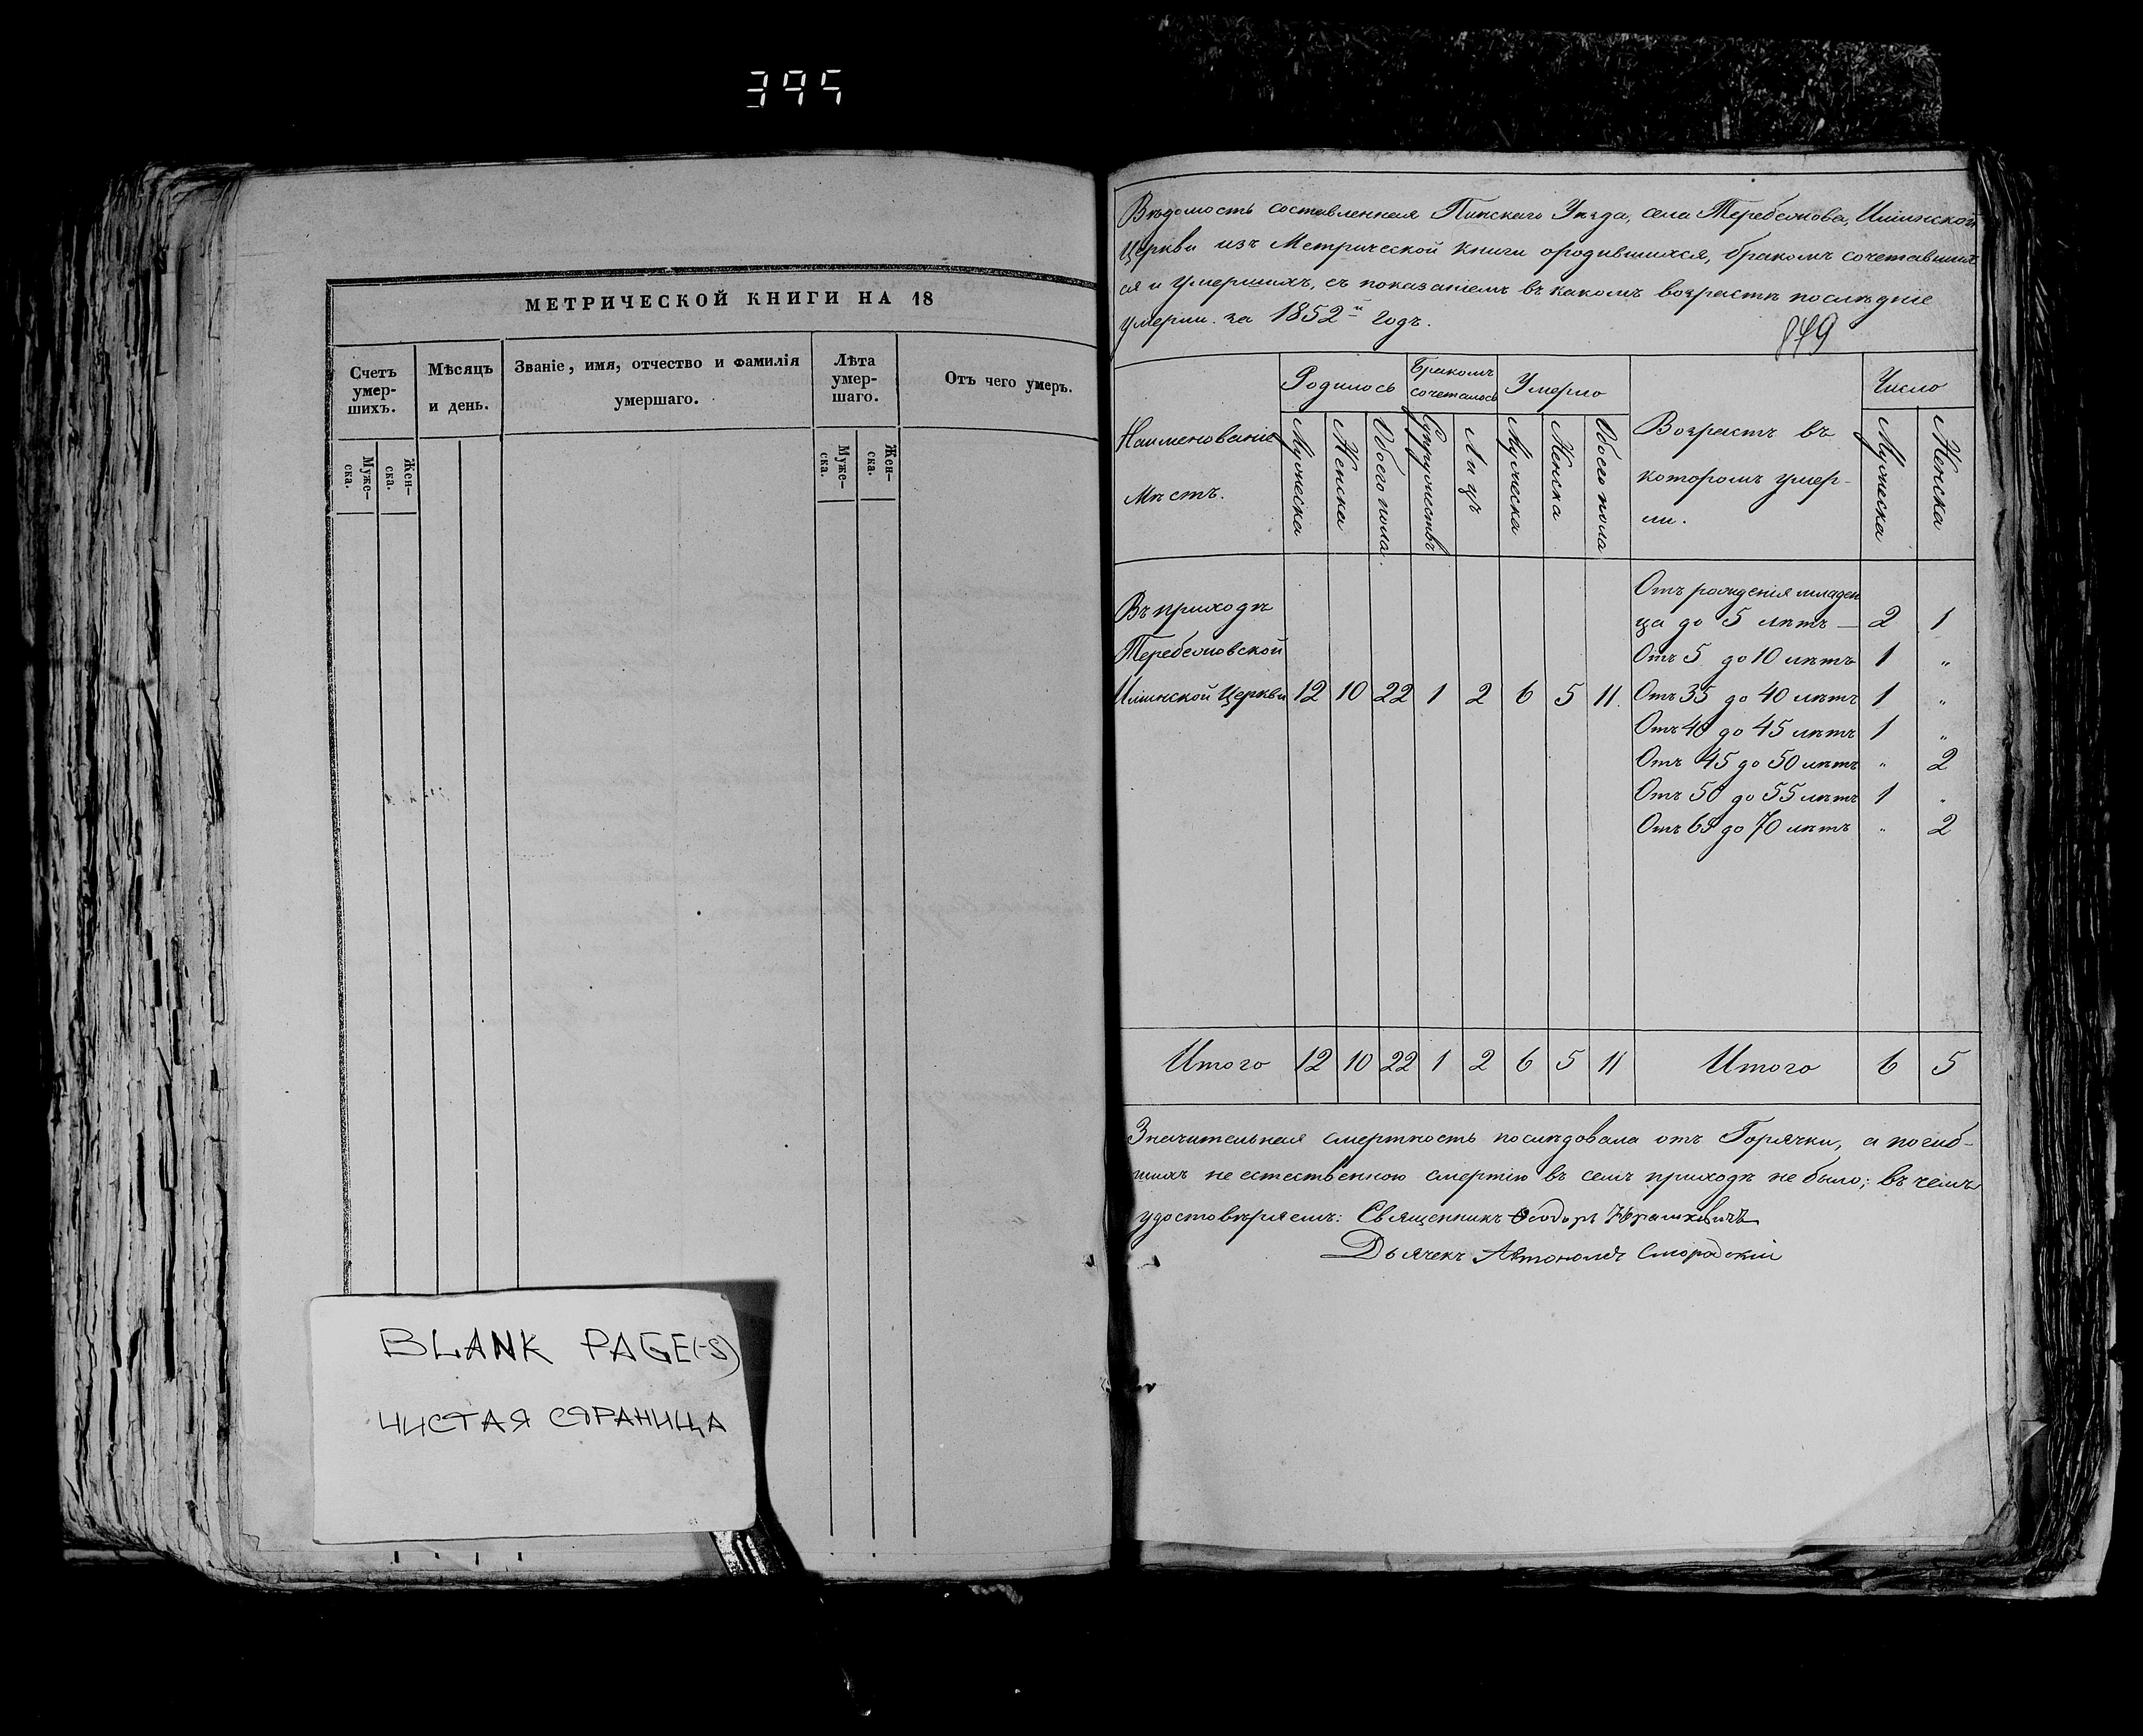 395
МЕТРИЧЕСКОЙ КНИГИ НА 18
Счетъ умер- шихъ.
Мѣсяцъ и день.
Званіе, имя, отчество и фамилія умершаго.
Лѣта умер- шаго.
Отъ чего умеръ.
Муже- ска.
Жен- ска.
Муже- ска.
Жен- ска.
BLANK PAGE(-S)
ЧИСТАЯ СТРАНИЦА
Вѣдомость составленная Пинскаго Уѣзда, села Теребежова, Илiинской
Церкви изъ Метрической Книги ородившихся, бракомъ сочетавших
ся и умершихъ, съ показаніемъ въ какомъ возрастѣ послѣдніе
умерли. за 1852й годъ.
849
Наименованіе Мѣстъ.
Родилось
Бракомъ сочеталось
Умерло
Возрастъ въ которомъ умер- ли.
Число
Мужеска
Женска
Обоего пола.
Супружествъ
Лицъ
Мужеска
Женска
Обоего пола
Мужеска
Женска
Въ приходѣ
Теребежовской
Илiинской Церкви 12 10 22 1 2 6 5 11.
Отъ рожденія младен
ца до 5 лѣтъ — 2 1
Отъ 5 до 10 лѣтъ 1 "
Отъ 35 до 40 лѣтъ 1 "
Отъ 40 до 45 лѣтъ 1 "
Отъ 45 до 50 лѣтъ " 2
Отъ 50 до 55 лѣтъ 1 "
Отъ 65 до 70 лѣтъ " 2
Итого 12 10 22 1 2 6 5 11 Итого 6 5
Значительная смертность послѣдовала отъ Горячки, а погиб-
шихъ не естественною смертію въ семъ приходѣ не было; въ чемъ
удостовѣряемъ: Священникъ Ѳеодоръ
Дьячекъ Автономъ Смородскій